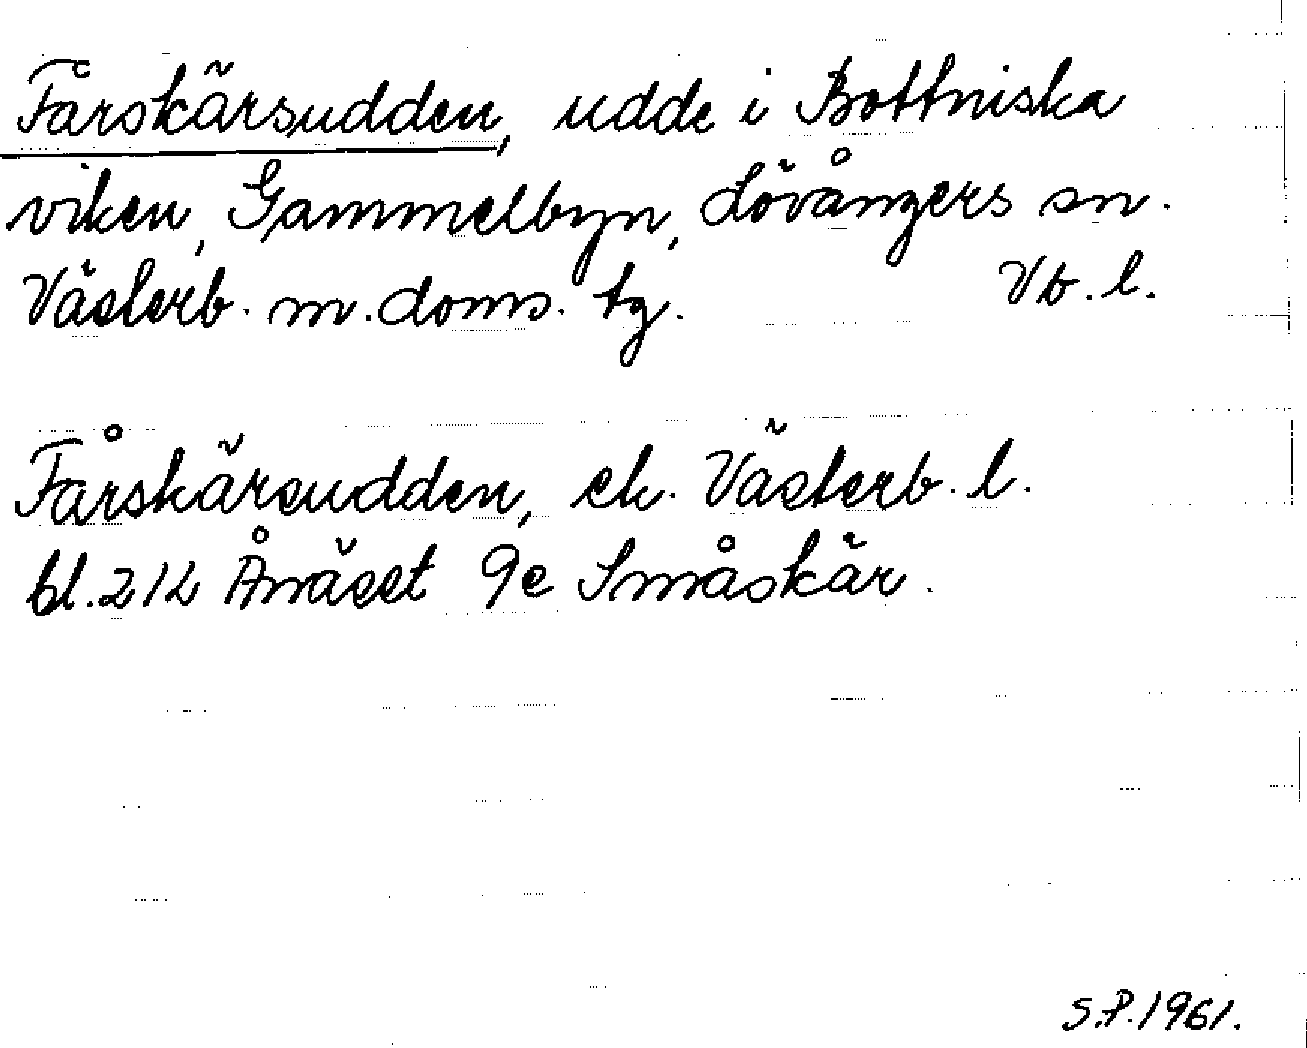 Fårskärsudden, udde i Bottniska
viken, Gammelbyn, Lövångers sn.
Västerb. m. doms. tg. Vb. l.
Fårskärsudden, ek. Västerb. l.
bl. 21L Ånäset 9e Småskär.
S.P. 1961.